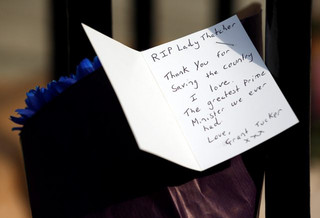 RIP Lady Thatcher
Thank you for
Saving the country
I love.
The greatest Prime
Minister we ever
had
Love,
Grant Tucker
xxx